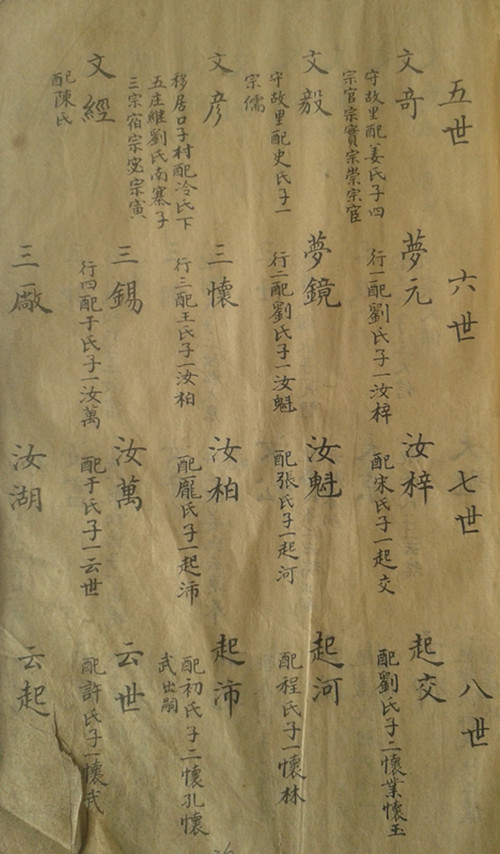 五世
文奇
守故里配姜氏子四
宗官宗實宗崇宗宦
文毅
守故里配史氏子一
宗儒
文彦
移居口子村配冷氏下
五庄継劉氏南寨子
三宗宿宗宓宗寅
文經
配陳氏
六世
夢元
行一配劉氏子一汝梓
夢鏡
行二配劉氏子一汝魁
三懷
行三配王氏子一汝柏
三錫
行四配于氏子一汝萬
三廠
七世
汝梓
配宋氏子一起交
汝魁
配張氏子一起河
汝柏
配龐氏子一起沛
汝萬
配于氏子一云世
汝湖
八世
起交
配劉氏子二懷業懷玉
起河
配程氏子一懷林
起沛
配初氏子二懷孔懷
武出嗣
云世
配許氏子一懷武
云起